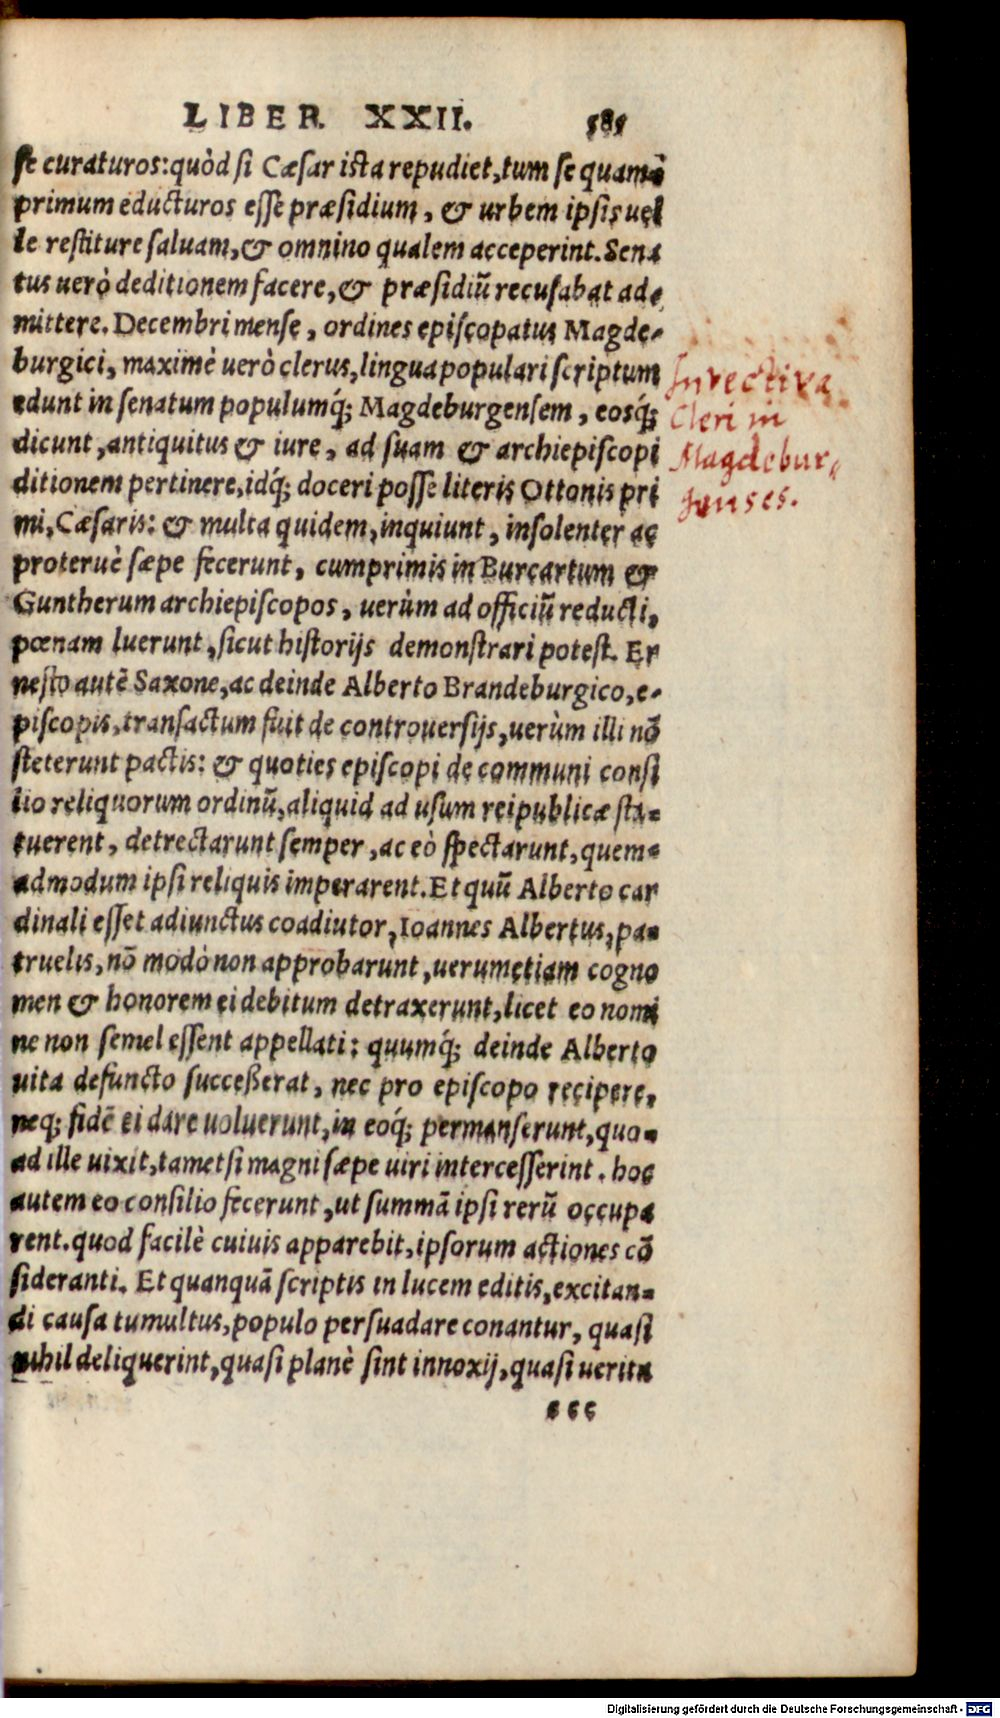 LIBER XXII. 585
se curaturos: quòd si Cæsar ista repudiet, tum se quam=
primum educturos esse præsidium, & urbem ipsis uel
le restiture saluam, & omnino qualem acceperint. Sena
tus uerò deditionem facere, & præsidiũ recusabat ad=
mittere. Decembri mense, ordines episcopatus Magde=
burgici, maximè uerò clerus, lingua populari scriptum
edunt in senatum populumq́; Magdeburgensem, eosq́;
dicunt, antiquitus & iure, ad suam & archiepiscopi
ditionem pertinere, idq́; doceri posse literis Ottonis pri
mi, Cæsaris: & multa quidem, inquiunt, insolenter ac
proteruè sæpe fecerunt, cumprimis in Burcartum &
Guntherum archiepiscopos, uerùm ad officiũ reducti,
pœnam luerunt, sicut historijs demonstrari potest. Er
nesto autẽ Saxone, ac deinde Alberto Brandeburgico, e=
piscopis, transactum fuit de controuersijs, uerùm illi nõ
steterunt pactis: & quoties episcopi de communi consi
lio reliquorum ordinũ, aliquid ad usum reipublicæ sta=
tuerent, detrectarunt semper, ac eò spectarunt, quem=
admodum ipsi reliquis imperarent. Et quũ Alberto car
dinali esset adiunctus coadiutor, Ioannes Albertus, pa=
truelis, nõ modò non approbarunt, uerumetiam cogno
men & honorem ei debitum detraxerunt, licet eo nomi
ne non semel essent appellati: quumq́; deinde Alberto
uita defuncto successerat, nec pro episcopo recipere,
neq; fidẽ ei dare uoluerunt, in eoq́; permanserunt, quo=
ad ille uixit, tametsi magni sæpe uiri intercesserint. hoc
autem eo consilio fecerunt, ut summã ipsi rerũ occupa
rent. quod facilè cuiuis apparebit, ipsorum actiones cõ
sideranti. Et quanquã scriptis in lucem editis, excitan=
di causa tumultus, populo persuadere conantur, quasi
nihil deliquerint, quasi planè sint innoxij, quasi uerita
e e e
Invectiva
Cleri in
Magdebur,,
genses.
Digitalisierung gefördert durch die Deutsche Forschungsgemeinschaft - DFG